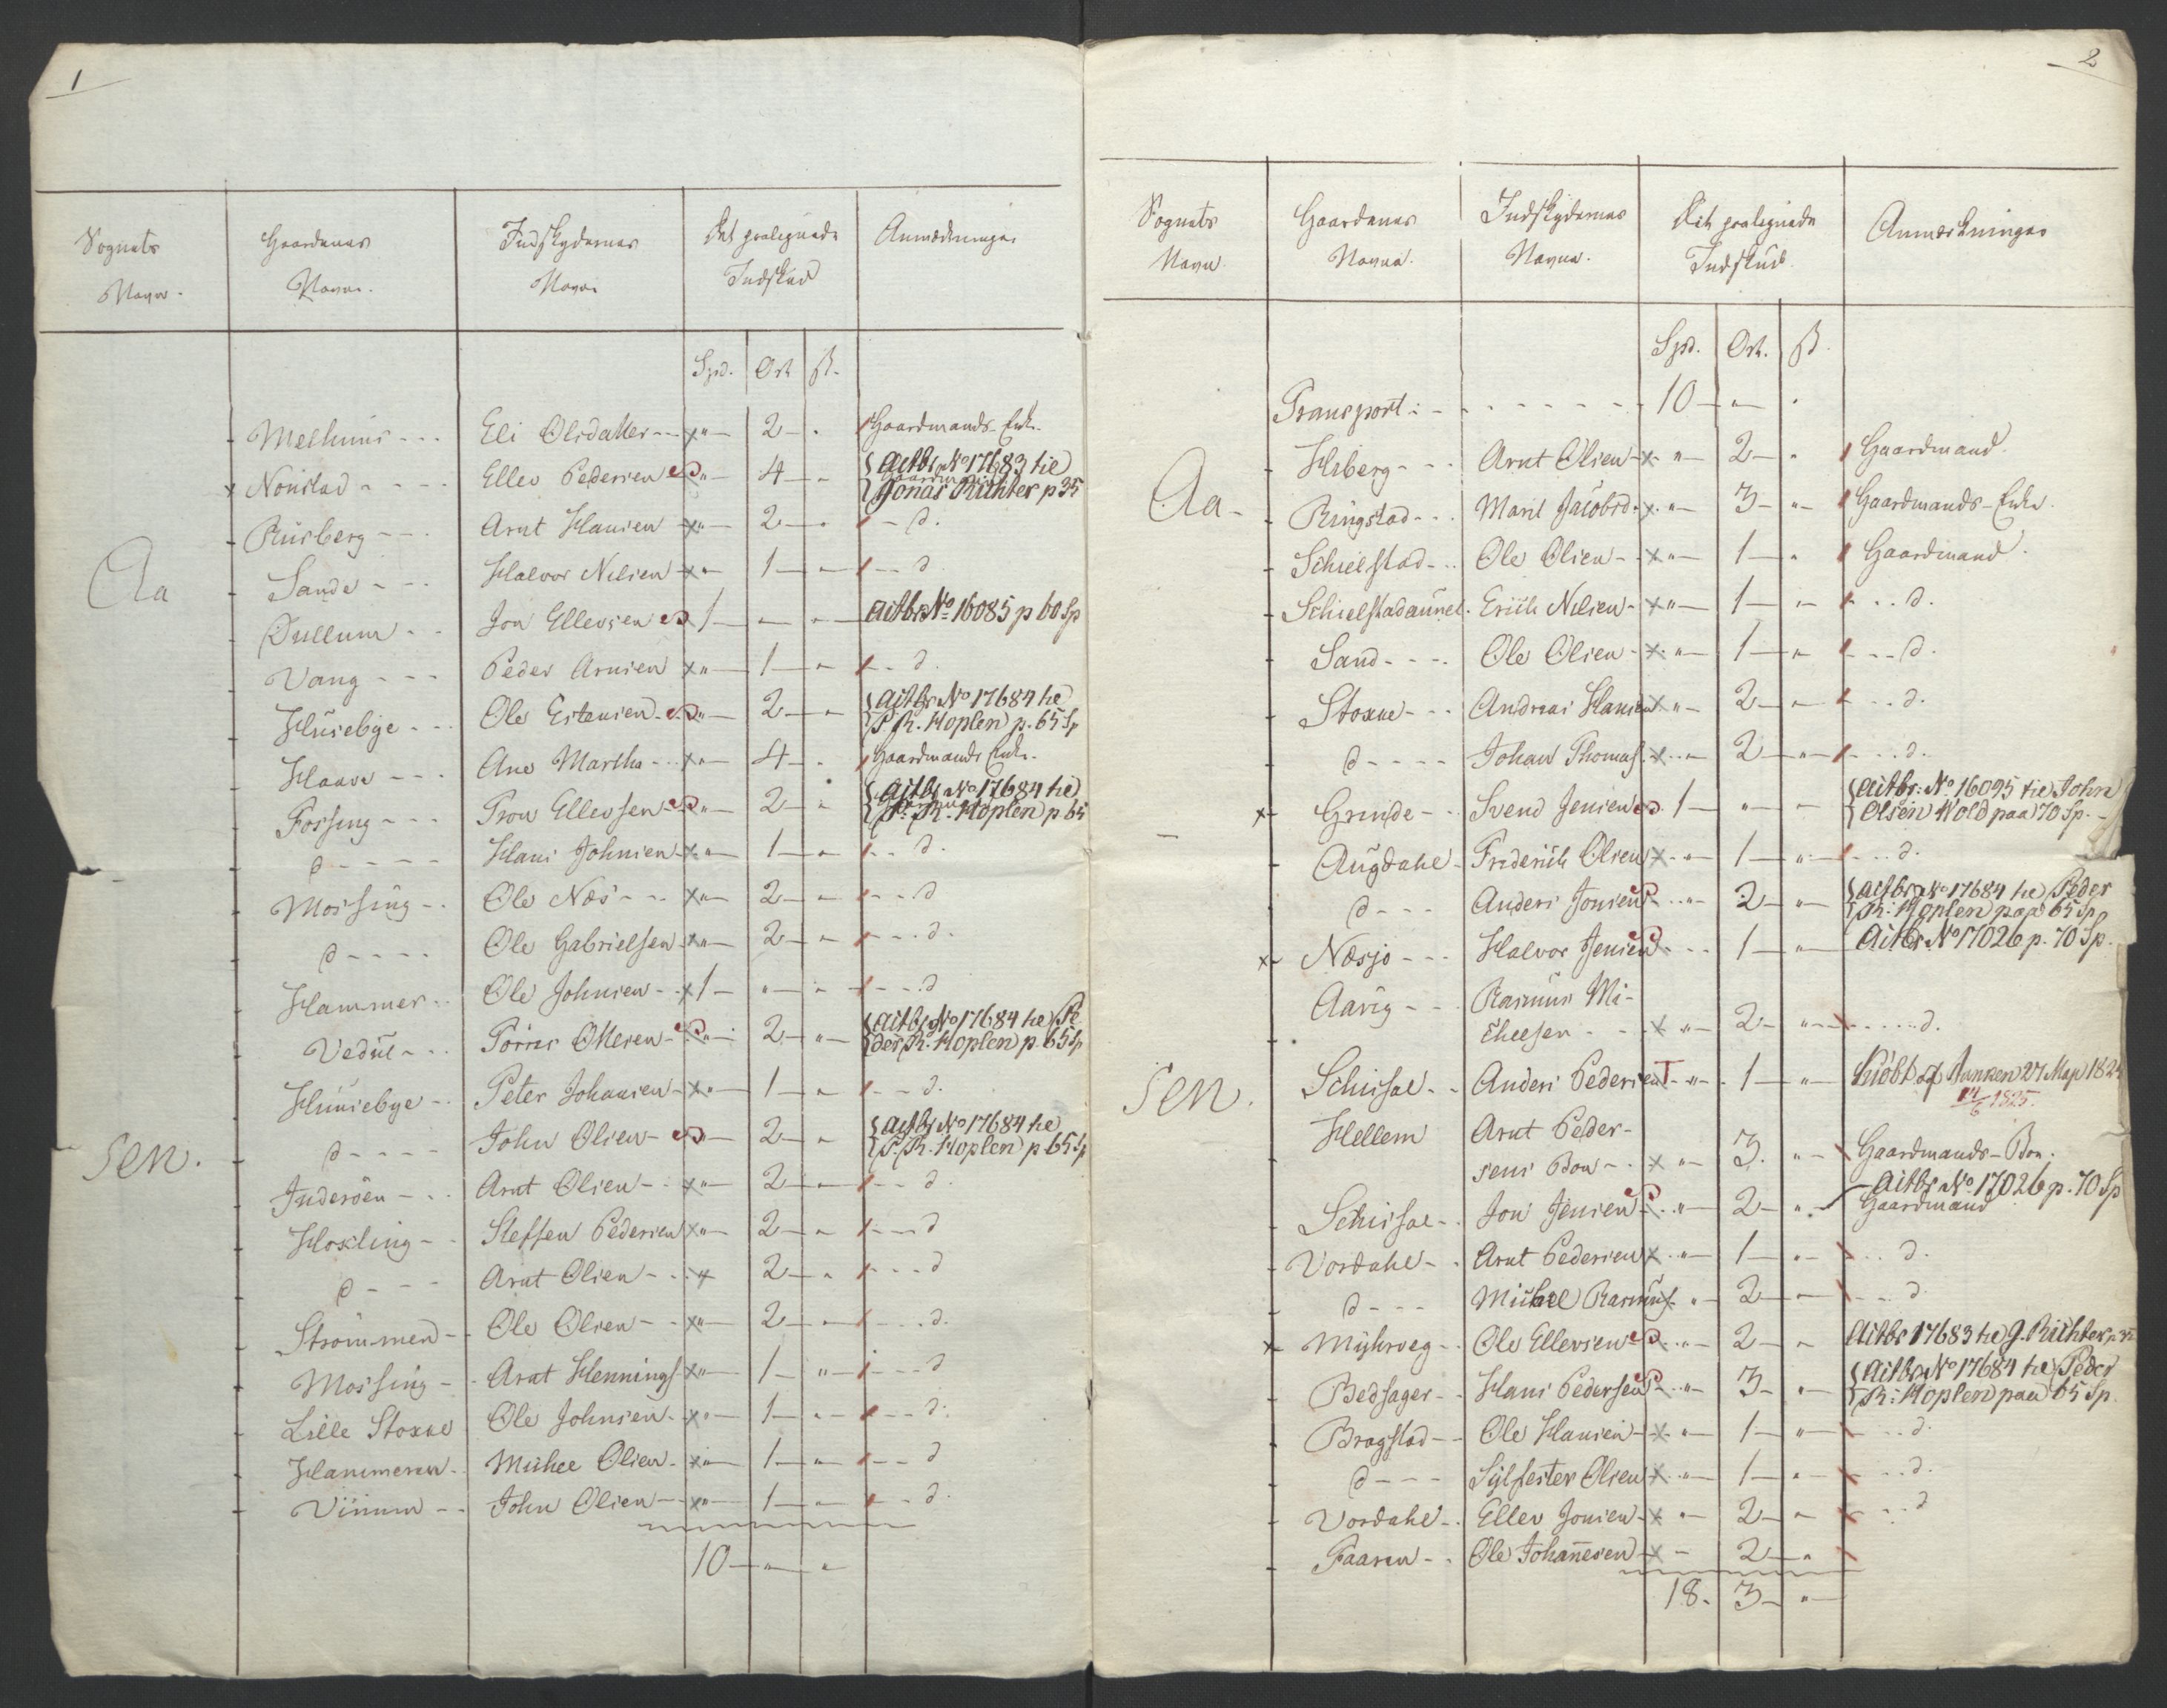 1
Sognets Navn. Gaardenes Navne. Indskydernes Navne Det paalignede Indskud Anmærkninger
Spd. Ort ß.
Aa
Melhuus - - - Eli Olsdatter - - x " - 2 - . Gaardmands Enke.
x Nonstad - - - - Ellev Pedersen " - 4 - " Actbr. No 17683 til
Jonas Richter p 35
Rusberg - - - Arnt Hansen x " - 2 - " - d.
Sande - - - Halvor Nilsen x " - 1 - " - - d.
Dullum - - Jon Ellevsen 1 - " - " - Actbr. No 16085 p 60 Sp
Vang - - - Peder Arnsen x " - 1 - " - - d.
Husebye - - - Ole Estensen - " - 2 - " Actbr. No 17684 til
P. R. Hoplen p. 65 Sp
Haave - - - Ane Martha - - x " - 4 - . Gaardmands Enke.
Fossing - - - Tron Ellevsen - " - 2 - " Actbr. No 17684 til
P. R. Hoplen p 65
d - - - - Hans Johnsen - x " - 1 - " - - d.
Mossing - - Ole Næs - - - x " - 2 - " - - - d
d - - - - Ole Gabrielsen - x " - 2 - " - - - d.
Hammer - - Ole Johnsen - - x 1 - " - " - - - d
Vedul - - - Torris Ottesen - " - 2 - " - Actbr. No 17684 til Pe-
der R. Hoplen p. 65 Sp
Huusebye - - Peter Johansen - x " - 1 - " - - - d.
d - - - - John Olsen - " - 2 - " Actbr. No 17684 til
P. R. Hoplen p 65 Sp
sen.
Inderøen - - - Arnt Olsen - - x " - 2 - " - - - d.
Hoxling - - Steffen Pedersen x " - 2 - " - - - d
d - - - Arnt Olsen - - - x 2 - " - - - d
Strømmen - - Ole Olsen - - x " - 2 - " - - - d.
Mossing - - Arnt Hennings x " - 1 - " - - - d
Lille Stoxne Ole Johnsen - x " - 1 - " - - - d.
Hammeren - - Michel Olsen - x " - 1 - " - - - d
Viinum - - John Olsen - - x " - 1 - " - - - d.
10 - " - "
2
Sognets Navn. Gaardenes Navne. Indskydernes Navne. Det paalignede Indskud. Anmærkninger
Spd. Ort. ß.
Transport: - - - - - - - 10 - " - "
Aa-
Hiberg - - - Arnt Olsen - x - " - 2 - " Gaardmand.
Ringstad - - - Marit Jacobsd. x " - 3 - " - Gaardmands-Enke.
Schielstad - - - Ole Olsen - - x " - 1 - " Gaardmand.
Schielstadaunet. Erich Nilsen - x " - 1 - " - - - - d.
Sand - - - - Ole Olsen - x " - 1 - " - - - - d.
Stoxne - - - Andreas Hansen x " - 2 - " - - - - d.
d - - - - Johan Thomas. x " - 2 - " - - - - d.
x Grinde - - - Svend Jensen 1 - " - " - Actbr: No 16095 til John
Olsen Wold paa 70 Sp. -
Augdahl - Frederich Olsen x " - 1 - " - - - d.
d - - - Anders Jonsen - " - 2 - " - Actbr. No 17684 til Peder
R: Hoplen paa 65 Sp
x Næsjo - - - Halvor Jensen - - - 1 - " - Actbr. No 17026 p. 70 Sp.
Aarig - - - Rasmus Mi-
chelsen - - - x " - 2 - " - - - - - - d.
sen.
Schissel - - Anders Pedersen T - " - 1 - " - Kiøbt af Banken 27 Map 1824
14/6 1825.
Hellem Arnt Peder-
sens Boe - - x " - 3 - " - Gaardmands-Boe.
Actbr. No 17026 p. 70 Sp
Schissel - - Jon Jensen - " - 2 - " Gaardmand
Vordahl - - Arnt Pedersen x " - 1 - " - - - d.
d - - - Michel Rasmus. x " - 2 - " - - - d
x Myhrveg - - Ole Ellevsen - " - 2 - " Actbr 17683 til J. Richter p. 35
Bedsager - - Hans Pedersen - " - 3 - " - Actbr. No 17684 til Peder
R: Hoplen paa 65 Sp.
Bragstad - - Ole Hansen - x - " - 1 - " - - - d.
d - - - - Sylfester Olsen x " - 1 - " - - - d.
Vordahl - - Ellev Jonsen - x " - 2 - " - - - d
Faaren - - Ole Johannesen - x - 2 - "
18. 3 - " -